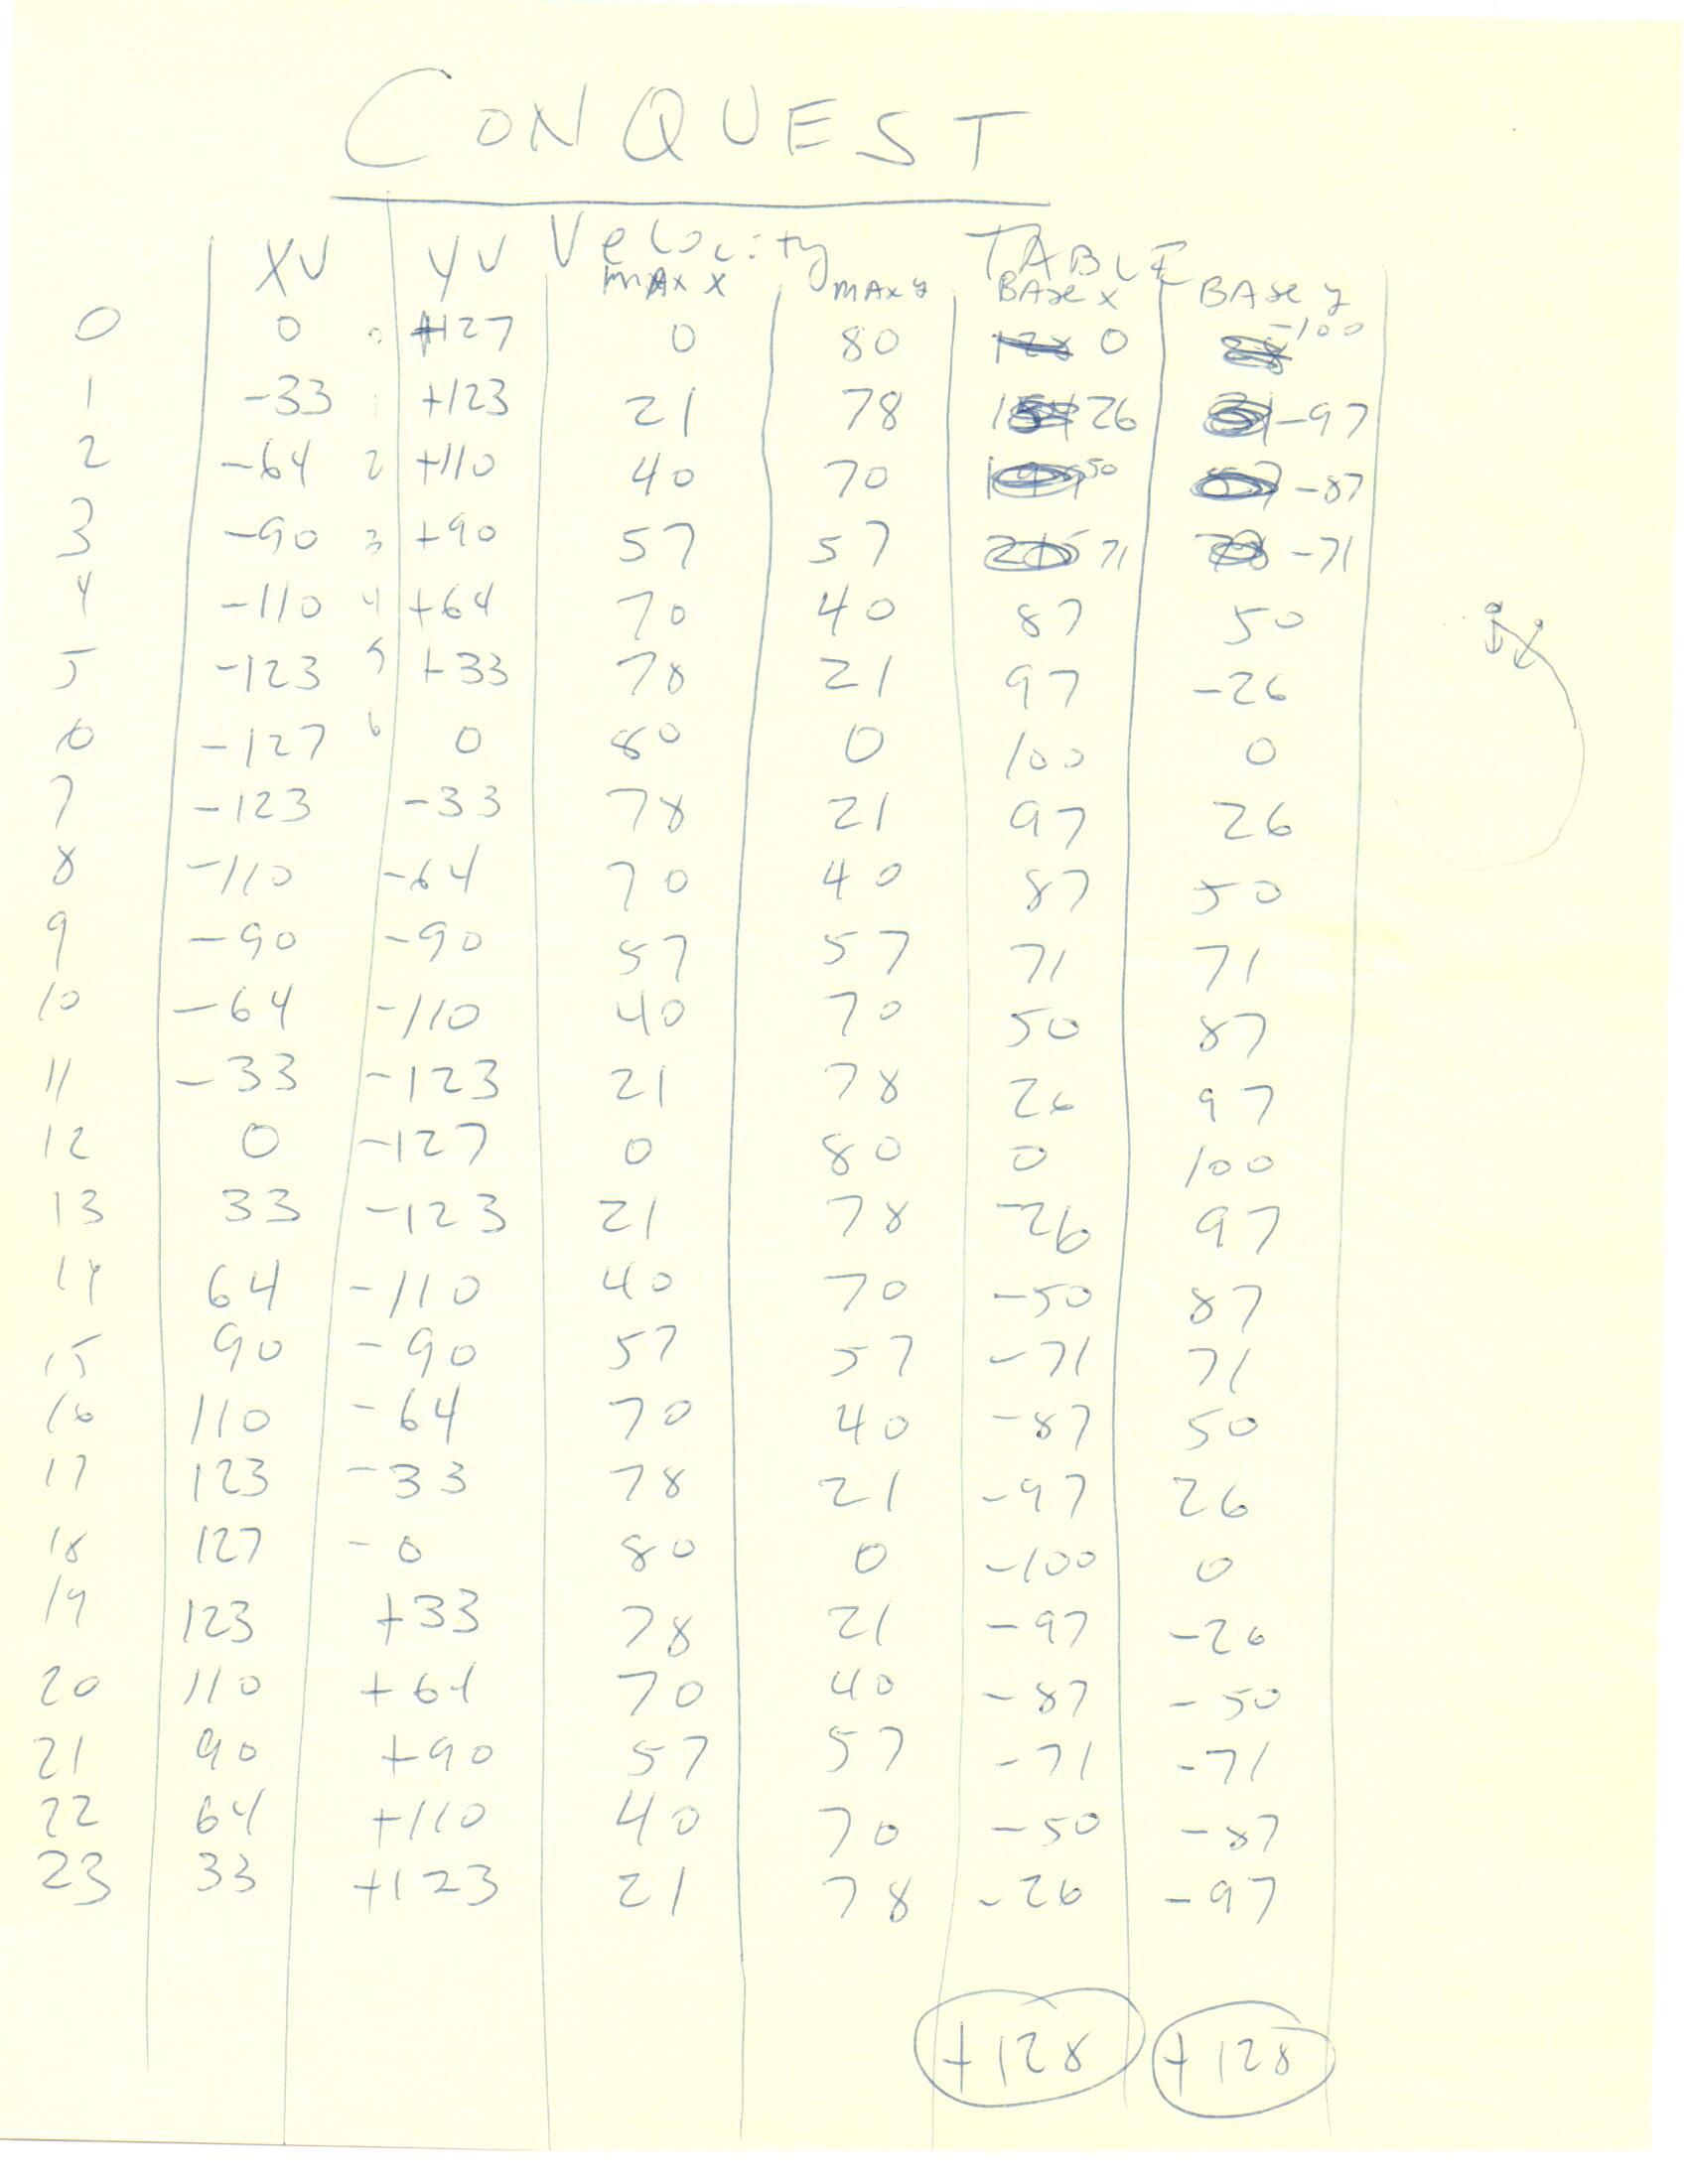 CONQUEST
Velocity TABLE
XV YV MAX X MAX y BASE X BASE y
0 0 0 +127 0 80 0 -100
1 -33 1 +123 21 78 26 -97
2 -64 2 +110 40 70 50 -87
3 -90 3 +90 57 57 71 -71
4 -110 4 +64 70 40 87 50
5 -123 5 +33 78 21 97 -26
6 -127 6 0 80 0 100 0
7 -123 -33 78 21 97 26
8 -110 -64 70 40 87 50
9 -90 -90 57 57 71 71
10 -64 -110 40 70 50 87
11 -33 -123 21 78 26 97
12 0 -127 0 80 0 100
13 33 -123 21 78 -26 97
14 64 -110 40 70 -50 87
15 90 -90 57 57 -71 71
16 110 -64 70 40 -87 50
17 123 -33 78 21 -97 26
18 127 -0 80 0 -100 0
19 123 +33 78 21 -97 -26
20 110 +64 70 40 -87 -50
21 90 +90 57 57 -71 -71
22 64 +110 40 70 -50 -87
23 33 +123 21 78 -26 -97
+128 +128